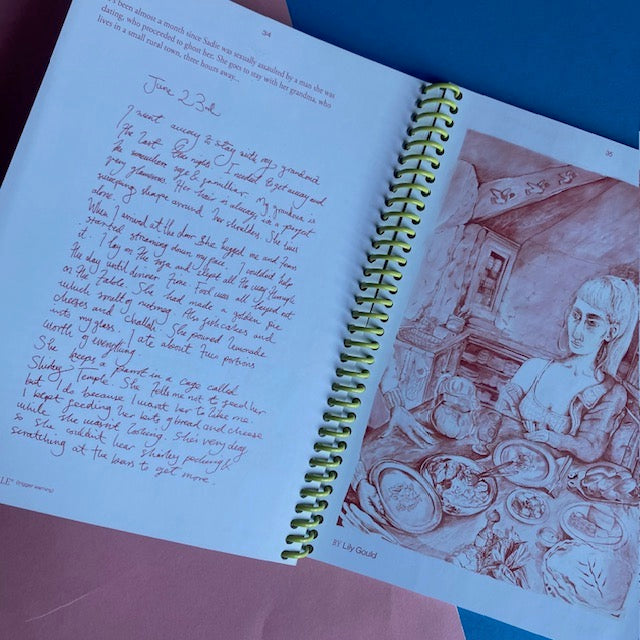 34
's been almost a month since Sadie was sexually assaulted by a man she was
dating, who proceeded to ghost her. She goes to stay with her grandma, who
lives in a small rural town, three hours away...
June 23rd
I went away to stay with my grandma
for last few nights. I needed to get away and
be somewhere safe & familiar. My grandma is
very glamorous. Her hair is always in a perfect
sweeping shape around her shoulders. She lives
alone.
When I arrived at the door she hugged me and tears
started streaming down my face. I couldn't help
it. I lay on the sofa and slept all the way through
the day until dinner time. Food was all layed out
on the table. She had made a golden pie
which smelt of nutmeg. Also fish cakes and
cheeses and challah. She poured lemonade
into my glass. I ate about two portions
worth of everything.
She keeps a parrot in a cage called
Shirley Temple. She tells me not to feed her
but I do because I want her to like me.
I kept feeding her bits of bread and cheese
while she wasn't looking. She's very deaf
so she couldn't hear Shirley pecking &
scratching at the bars to get more.
LE" (trigger warning)
35
BY Lily Gould